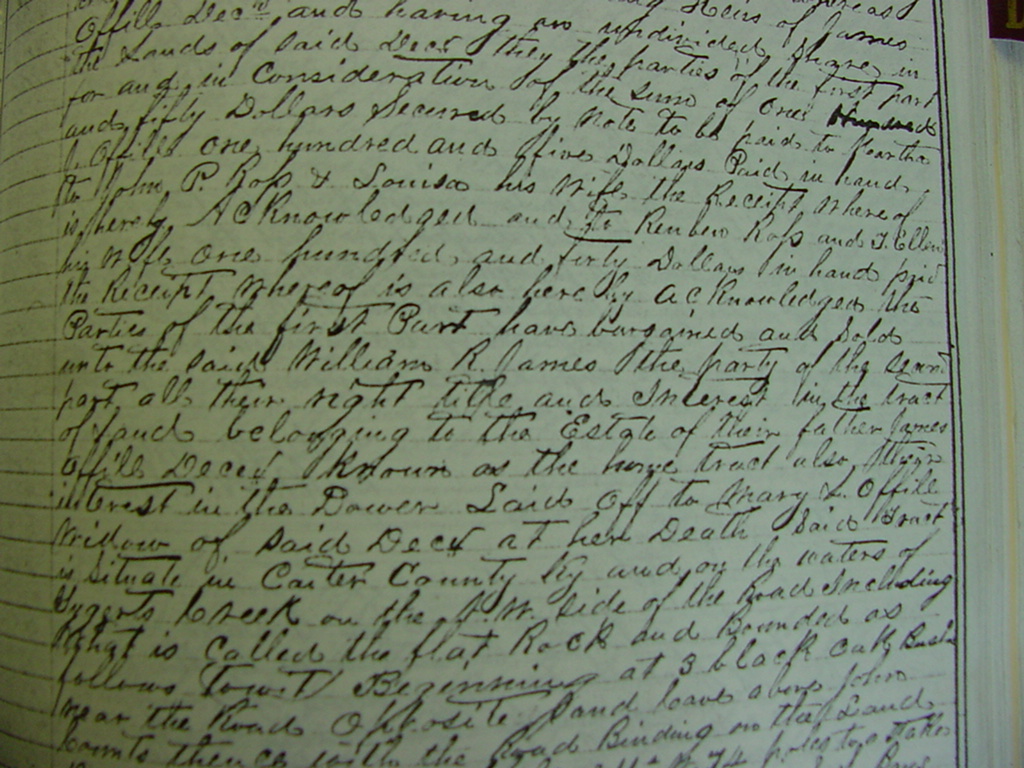 Heirs of James
Offill Decd and having an undivided share in
the Lands of said Decd they the parties of the first part
for and in Consideration of the sum of one Hundred
and fifty Dollars Secured by note to be paid to
L. Offill one hundred and five Dollars Paid in hand
to John P. Ross & Louisa his wife the Receipt Where of
is hereby Acknowledged and to Reuben Ross and T. Ellen
his wife one hundred and forty Dollars in hand paid
the Receipt Whereof is also here by acknowledged the
Parties of the first Part have bargained and Sold
unto the said William R. James the party of the
part all their right title and Interest in the tract
of Land belonging to the Estate of their father James
Offill Decd Known as the home tract also their
interest in the Dower Laid off to Mary L. Offill
Widow of said Decd at her Death Said Tract
is situate in Carter County Ky and on the waters of
Tygerts Creek on the N.W. side of the Road Including
What is Called the flat Rock and Bounded as
follows Towit Beginning at 3 black oak
near the Road Opposite and above John
thence with the Road Binding on the Land
74 poles to